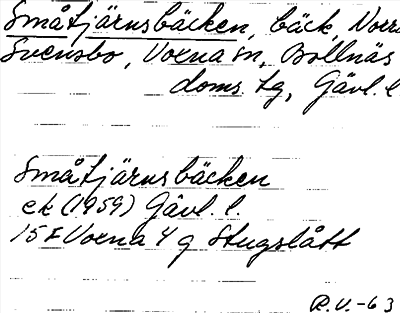 Småtjärnsbäcken, bäck, Norra
Svensbo, Voxna sn, Bollnäs
doms. tg, Gävl. l.
Småtjärnsbäcken
ek (1959) Gävl. l.
15F Voxna 4 g Stugslått
R.V.-63